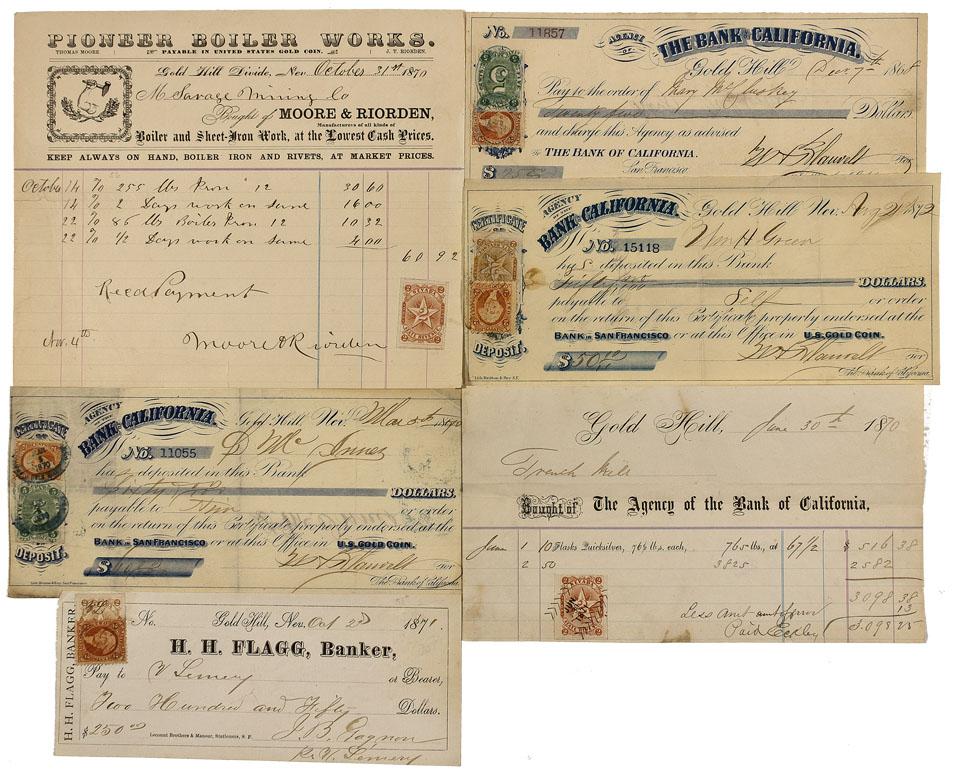 PIONEER BOILER WORKS.
THOMAS MOORE. PAYABLE IN UNITED STATES GOLD COIN. J. T. RIORDEN.
Gold Hill Divide, Nev. October 31st 1870
M Savage Mining Co
Bought of MOORE & RIORDEN,
Manufacturers of all kinds of
Boiler and Sheet-Iron Work, at the Lowest Cash Prices.
KEEP ALWAYS ON HAND, BOILER IRON AND RIVETS, AT MARKET PRICES.
October 14 To 255 lbs Iron 12 30 60
14 To 2 Days work on same 16 00
22 To 86 lbs Boiler Iron 12 10 32
22 To 1/2 Days work on same 4 00
60 92
Recd Payment
Nov. 4th
Moore & Riorden
No. 11857
AGENCY OF THE BANK OF CALIFORNIA.
Gold Hill Dec 7th 1868
Pay to the order of Mary McCluskey
Dollars
and charge this Agency as advised
To THE BANK OF CALIFORNIA.
San Francisco
$
CERTIFICATE OF DEPOSIT.
AGENCY BANK OF CALIFORNIA.
Gold Hill Nev. Aug 1872
No. 15118 Wm H Green
has deposited in this Bank
Fifty DOLLARS.
payable to Self or order
on the return of this Certificate properly endorsed at the
BANK IN SAN FRANCISCO or at this Office in U.S. GOLD COIN.
$50
The Bank of California
CERTIFICATE OF DEPOSIT.
AGENCY BANK OF CALIFORNIA.
Gold Hill Nev. Mar 5th 1870
No. 11055
has deposited in this Bank
DOLLARS.
payable to or order
on the return of this Certificate properly endorsed at the
BANK IN SAN FRANCISCO or at this Office in U.S. GOLD COIN.
The Bank of California
Gold Hill, June 30th 1870
French Mill
Bought of The Agency of the Bank of California,
June 1 10 Flasks Quicksilver, 76½ lbs. each, 765 lbs., at 67 1/2 $ 516 38
2 50 3825 2582
3098 38
Less amt 13
Paid 3098 25
H. H. FLAGG, BANKER.
No. Gold Hill, Nev. Oct 2d 1871.
H. H. FLAGG, Banker,
Pay to V Semery or Bearer,
Two Hundred and Fifty Dollars.
$250
Lecount Brothers & Mansur, Stationers, S. F.
J. B. Gagnon